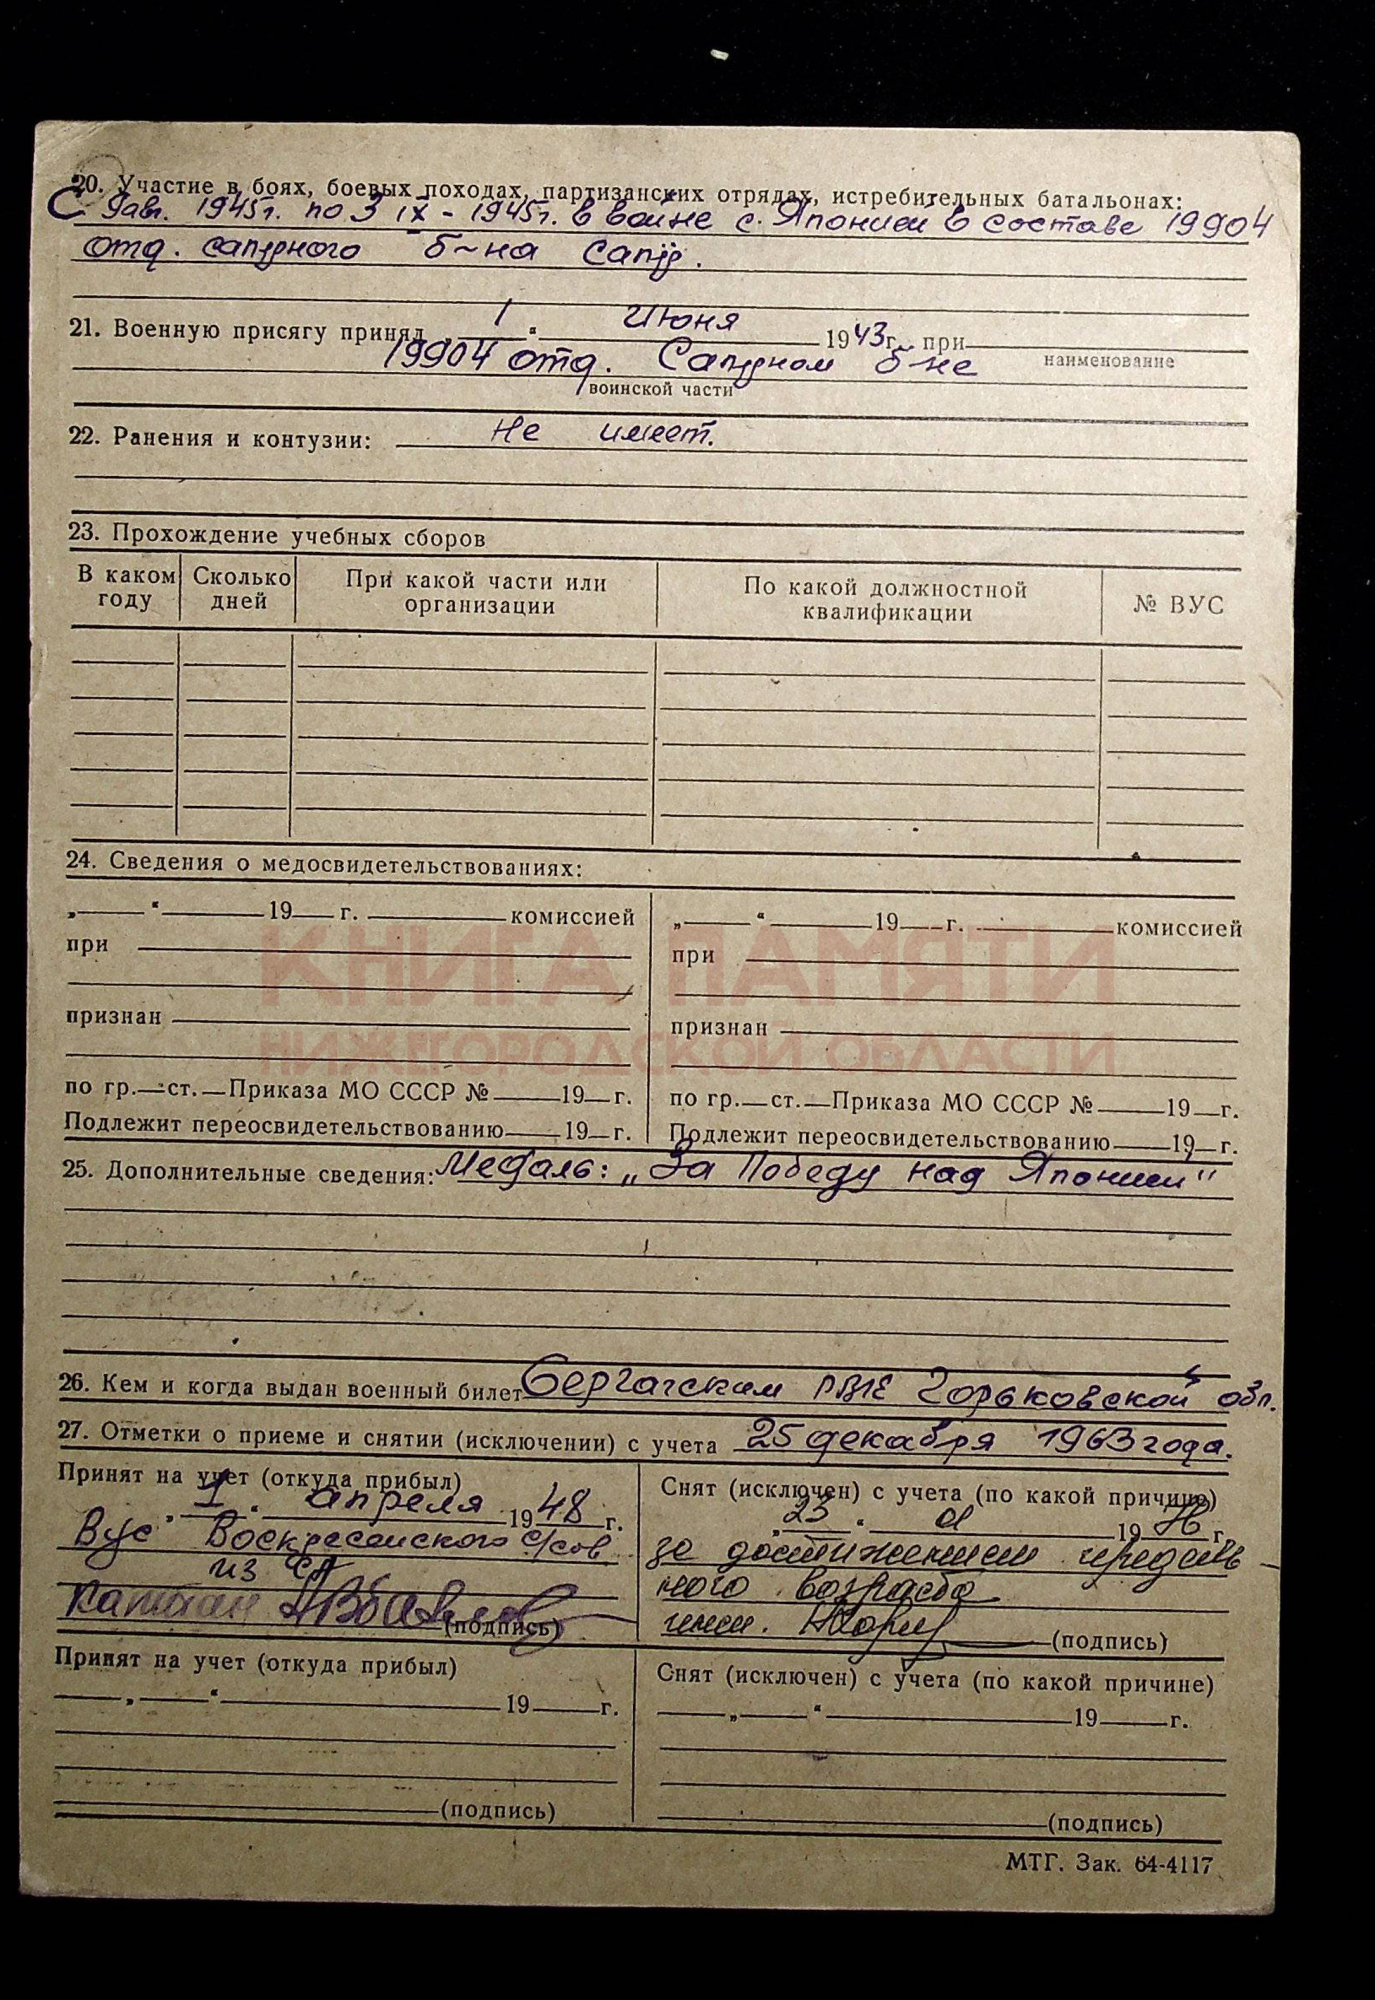 20. Участие в боях, боевых походах, партизанских отрядах, истребительных батальонах:
С 9 авг. 1945 г. по 3 IX - 1945 г. в войне с. Японией в составе 19904
отд. сапёрного б-на сапёр.
21. Военную присягу принял 1 " Июня 1943 г. при
наименование
19904 отд. Сапёрном б-не
воинской части
22. Ранения и контузии: Не имеет.
23. Прохождение учебных сборов
В каком году Сколько дней При какой части или организации По какой должностной квалификации № ВУС
24. Сведения о медосвидетельствованиях:
„ “ 19 г. комиссией
при
признан
по гр. ст. Приказа МО СССР № 19 г.
Подлежит переосвидетельствованию 19 г.
„ “ 19 г. комиссией
при
признан
по гр. ст. Приказа МО СССР № 19 г.
Подлежит переосвидетельствованию 19 г.
КНИГА ПАМЯТИ
НИЖЕГОРОДСКОЙ ОБЛАСТИ
25. Дополнительные сведения: Медаль: „За Победу над Японией"
26. Кем и когда выдан военный билет Сергачским РВК Горьковской обл.
27. Отметки о приеме и снятии (исключении) с учета 25 декабря 1963 года.
Принят на учет (откуда прибыл)
„ 1 “ апреля 1948 г.
Вус Воскресенского с/сов
из СА
капитан
(подпись)
Снят (исключен) с учета (по какой причине)
„ 23 “ 19 г.
за достижением предель-
ного возраста
(подпись)
Принят на учет (откуда прибыл)
„ “ 19 г.
(подпись)
Снят (исключен) с учета (по какой причине)
„ “ 19 г.
(подпись)
МТГ. Зак. 64-4117